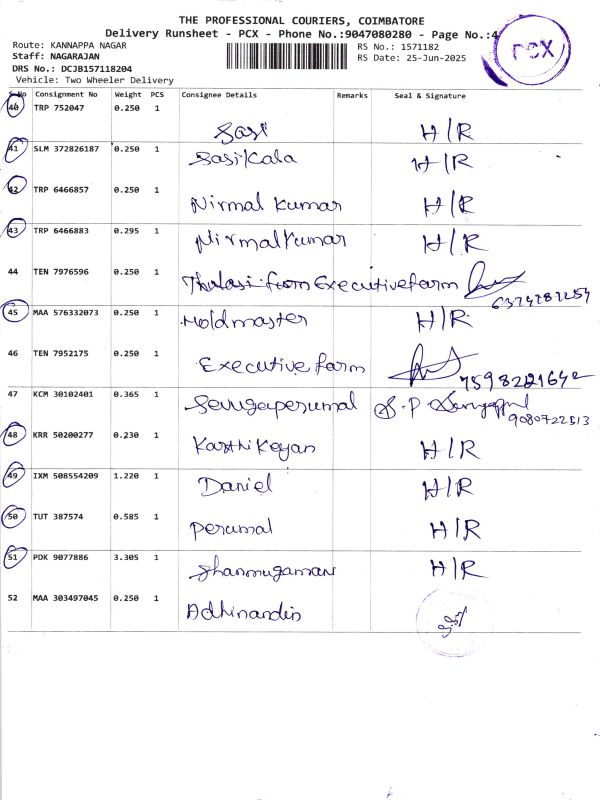 THE PROFESSIONAL COURIERS, COIMBATORE
Delivery Runsheet - PCX - Phone No.:9047080280 - Page No.:4
Route: KANNAPPA NAGAR
RS No.: 1571182
Staff: NAGARAJAN
RS Date: 25-Jun-2025
DRS No.: DCJB157118204
Vehicle: Two Wheeler Delivery
PCX
S.No Consignment No Weight PCS Consignee Details Remarks Seal & Signature
40 TRP 752047 0.250 1 Sasi H/R
41 SLM 372826187 0.250 1 Sasikala H/R
42 TRP 6466857 0.250 1 Nirmal Kumar H/R
43 TRP 6466883 0.295 1 Nirmal Kumar H/R
44 TEN 7976596 0.250 1 Thulasi from Executive farm
45 MAA 576332073 0.250 1 Holdmaster H/R
46 TEN 7952175 0.250 1 Executive farm 7598221642
47 KCM 30102401 0.365 1 9080722513
48 KRR 50200277 0.230 1 Karthikeyan H/R
49 IXM 508554209 1.220 1 Daniel H/R
50 TUT 387574 0.585 1 Perumal H/R
51 PDK 9077886 3.305 1 H/R
52 MAA 303497045 0.250 1